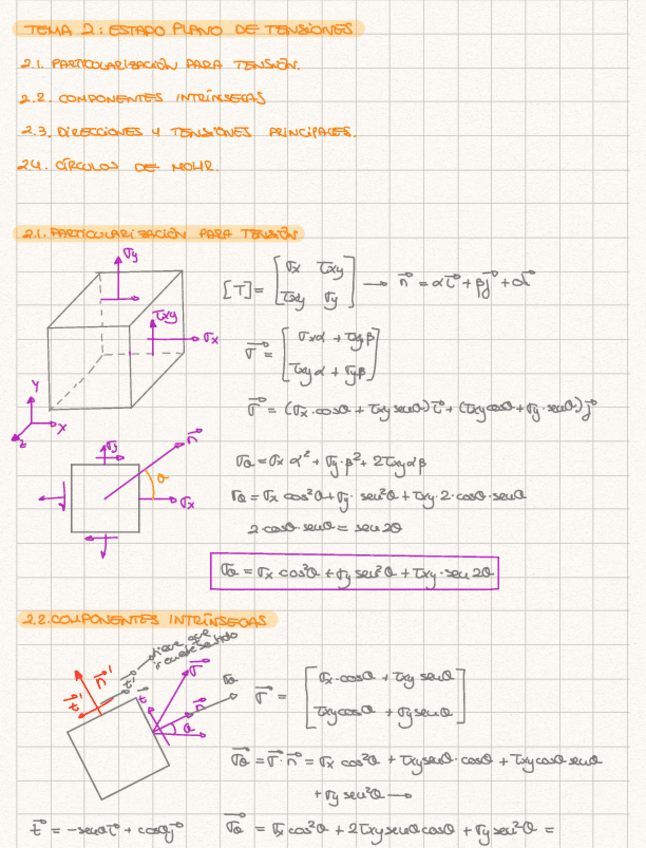 TEMA 2: ESTADO PLANO DE TENSIONES
2.1. PARTICULARIZACIÓN PARA TENSIÓN.
2.2. COMPONENTES INTRÍNSECAS
2.3. DIRECCIONES Y TENSIONES PRINCIPALES.
2.4. CÍRCULOS DE MOHR.
2.1. PARTICULARIZACIÓN PARA TENSIÓN
σy
τxy
σx
y
x
z
[T] = [σx τxy
τxy σy] → n⃗ = αi⃗ + βj⃗ + 0k⃗
σ⃗ = [σxα + τxyβ
τxyα + σyβ]
σ⃗ = (σx·cosθ + τxy senθ)i⃗ + (τxy cosθ + σy·senθ)j⃗
σy
n⃗
θ
σx
σθ = σx α² + σy·β² + 2τxyαβ
σθ = σx cos²θ + σy·sen²θ + τxy·2·cosθ·senθ
2 cosθ·senθ = sen2θ
σθ = σx cos²θ + σy sen²θ + τxy·sen2θ
2.2. COMPONENTES INTRÍNSECAS
tiene que
n⃗'
t⃗'
t⃗'
σ⃗
t⃗
n⃗
σθ
θ
σ⃗ = [σx·cosθ + τxy senθ
τxy cosθ + σy senθ]
σ⃗θ = σ⃗·n⃗ = σx cos²θ + τxy senθ·cosθ + τxy cosθ senθ
+ σy sen²θ →
t⃗ = -senθ i⃗ + cosθ j⃗
σ⃗θ = σx cos²θ + 2τxy senθ cosθ + σy sen²θ =